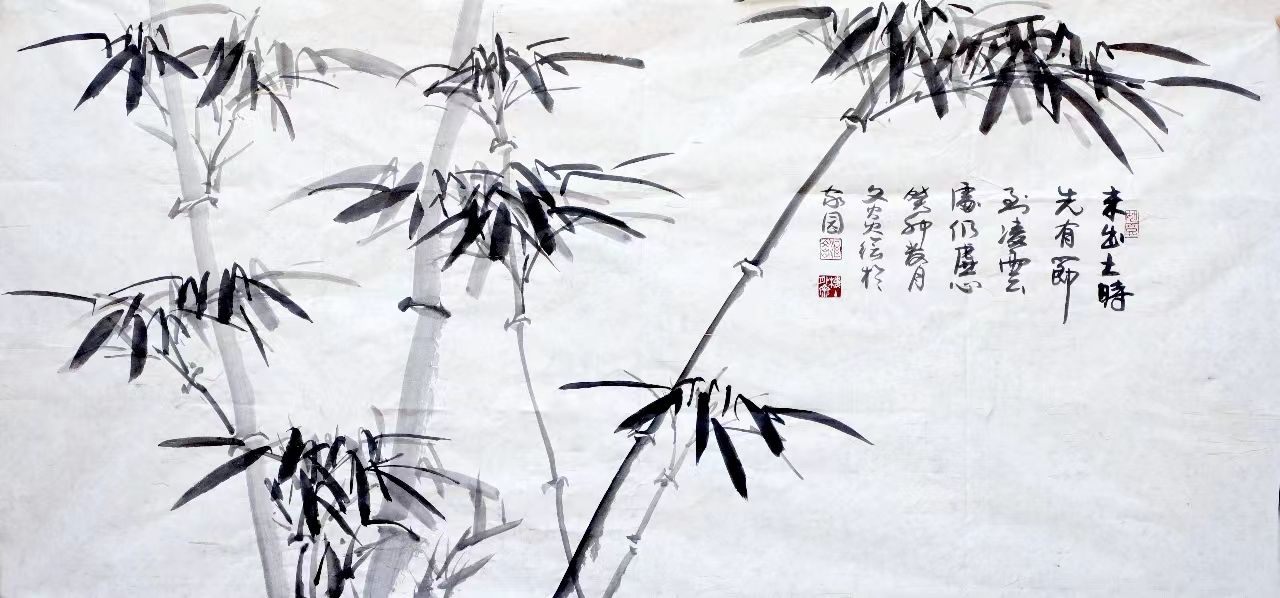 未出土時
先有節
到凌雲
處仍虛心
癸卯月
炎绘於
家园